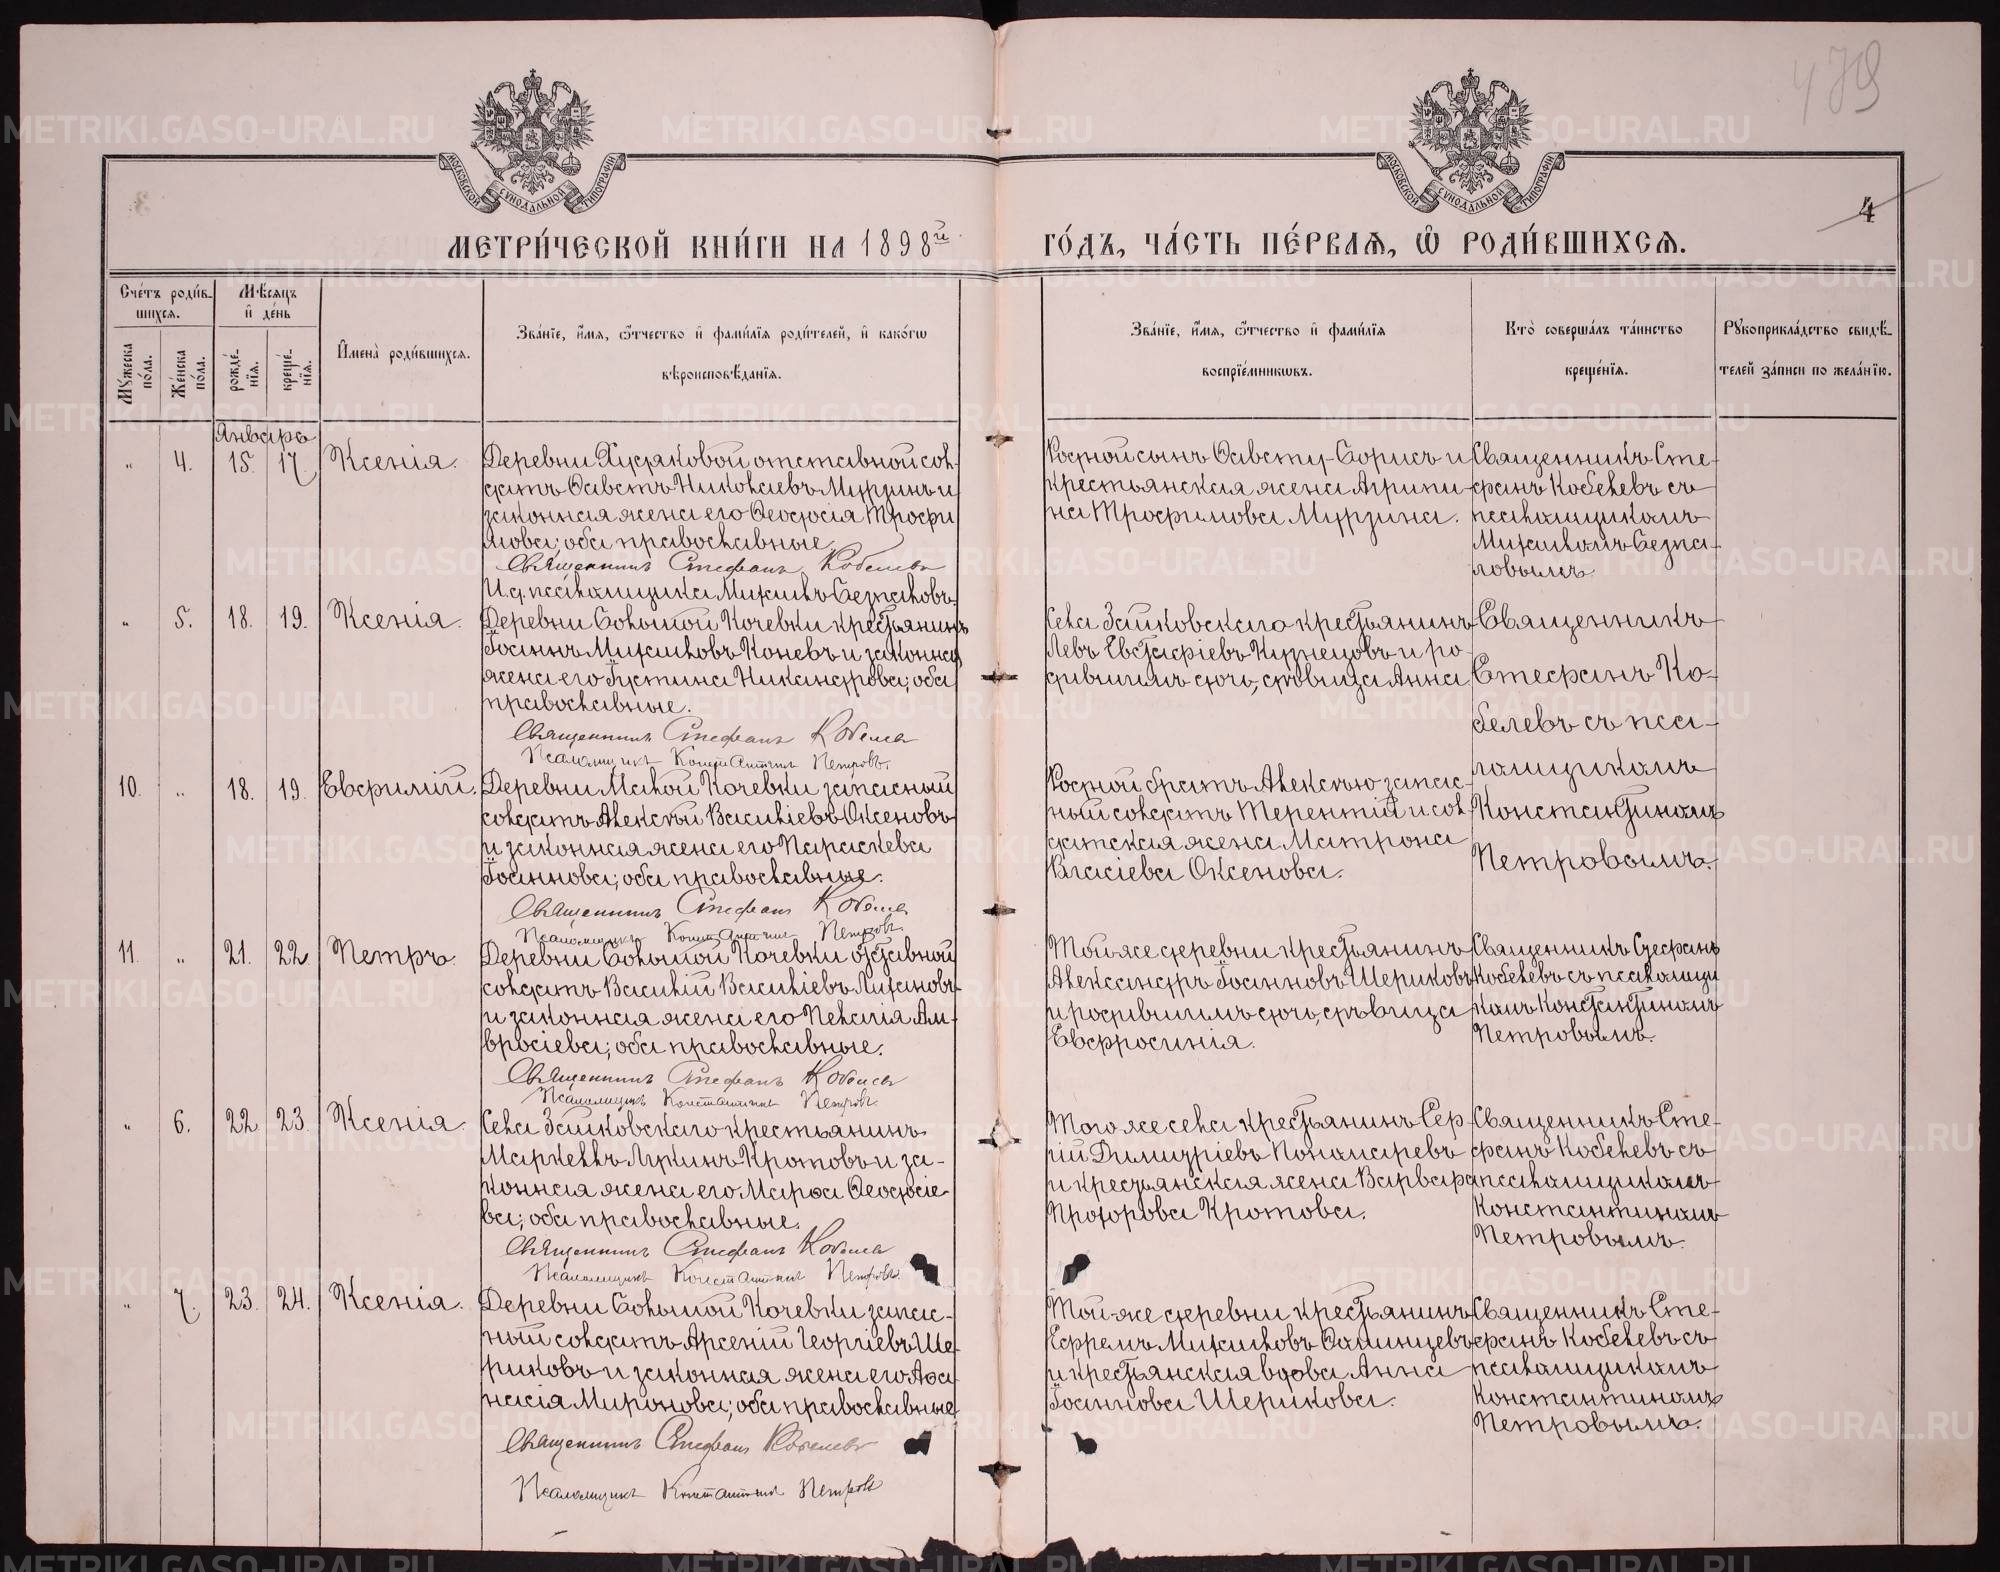 479
4
МОСКОВСКОЙ СУНОДАЛЬНОЙ ТИПОГРАФІИ
МОСКОВСКОЙ СУНОДАЛЬНОЙ ТИПОГРАФІИ
МЕТРИ́ЧЕСКОЙ КНИ́ГИ НА 1898й
ГО́ДЪ, ЧА́СТЬ ПЕ́РВАѦ, Ѽ РОДИ́ВШИХСѦ.
Сче́тъ роди́в-
шихсѧ.
Мѣ́сѧцъ
и҆ де́нь
Мꙋжеска по́ла.
Же́нска по́ла.
рожде́-
нїѧ.
креще́-
нїѧ.
И҆мена̀ роди́вшихсѧ.
Зва́нїе, и҆́мѧ, ѻ҆́тчество и҆ фами́лїѧ роди́телей, и҆ како́гѡ
вѣроисповѣ́данїѧ.
Зва́нїе, и҆́мѧ, ѻ҆́тчество и҆ фами́лїѧ
воспрїе́мникѡвъ.
Кто̀ соверша́лъ та́инство
креще́нїѧ.
Рꙋкоприкла́дство свидѣ́-
телей за́писи по жела́нїю.
Января
„ 4. 15. 17. Ксенія.
Деревни отставной сол-
датъ Савватъ Николаевъ Мурзинъ и
законная жена его Ѳеодосія Трофи
мова; оба православные.
Священникъ Стефанъ Кобелевъ
И.д. псаломщика Михаилъ Безпаловъ.
Родной сынъ Борисъ и
крестьянская жена Агрипи-
на Трофимова Мурзина.
Священникъ Сте-
фанъ Кобелевъ съ
псаломщикомъ
Михаиломъ Безпа-
ловымъ
„ 5. 18. 19. Ксенія.
Деревни Большой Кочевки крестьянинъ
Іоаннъ Михаиловъ Коневъ и законная
жена его Іустина Никандрова; оба
православные.
Священникъ Стефанъ Кобелевъ
Псаломщикъ Константинъ Петровъ.
Села Зайковскаго крестьянинъ
Левъ Евстафіевъ Кузнецовъ и ро-
дившимъ дочь, дѣвица Анна
Священникъ
Стефанъ Ко-
белевъ съ пса-
ломщикомъ
Константиномъ
Петровымъ.
10. „ 18. 19. Евфимій.
Деревни Малой Кочевки запасный
солдатъ Алексѣй Василіевъ Оксеновъ
и законная жена его Параскева
Іоаннова; оба православные.
Священникъ Стефанъ Кобелевъ
Псаломщикъ Константинъ Петровъ.
Родной братъ Алексѣю запас-
ный солдатъ Терентій и сол-
датская жена Матрона
Власіева Оксенова.
11. „ 21. 22. Петръ.
Деревни Большой Кочевки отставной
солдатъ Василій Василіевъ Лихановъ
и законная жена его Пелагія Ам-
вросіева; оба православные.
Священникъ Стефанъ Кобелевъ
Псаломщикъ Константинъ Петровъ.
Той же деревни крестьянинъ
Александръ Іоанновъ Шориковъ
и родившимъ дочь, дѣвица
Евфросинія.
Священникъ Стефанъ
Кобелевъ съ псаломщи
комъ Константиномъ
Петровымъ.
„ 6. 22 23. Ксенія.
Села Зайковскаго крестьянинъ
Маркеллъ Лукинъ Кротовъ и за-
конная жена его Марѳа Ѳеодосіе-
ва; оба православные.
Священникъ Стефанъ Кобелевъ
Псаломщикъ Константинъ Петровъ.
Того же села крестьянинъ Сер-
гій Димитріевъ Пономаревъ
и крестьянская жена Варвара
Прохорова Кротова.
Священникъ Сте-
фанъ Кобелевъ съ
псаломщикомъ
Константиномъ
Петровымъ.
„ 7. 23. 24. Ксенія.
Деревни Большой Кочевки запас-
ный солдатъ Арсеній Георгіевъ Шо-
риковъ и законная жена его Аѳа-
насія Миронова; оба православные
Священникъ Стефанъ Кобелевъ
Псаломщикъ Константинъ Петровъ
Той-же деревни крестьянинъ
Ефремъ Михаиловъ
и крестьянская вдова Анна
Іоаннова Шорикова.
Священникъ Сте-
фанъ Кобелевъ съ
псаломщикомъ
Константиномъ
Петровымъ.
METRIKI.GASO-URAL.RU